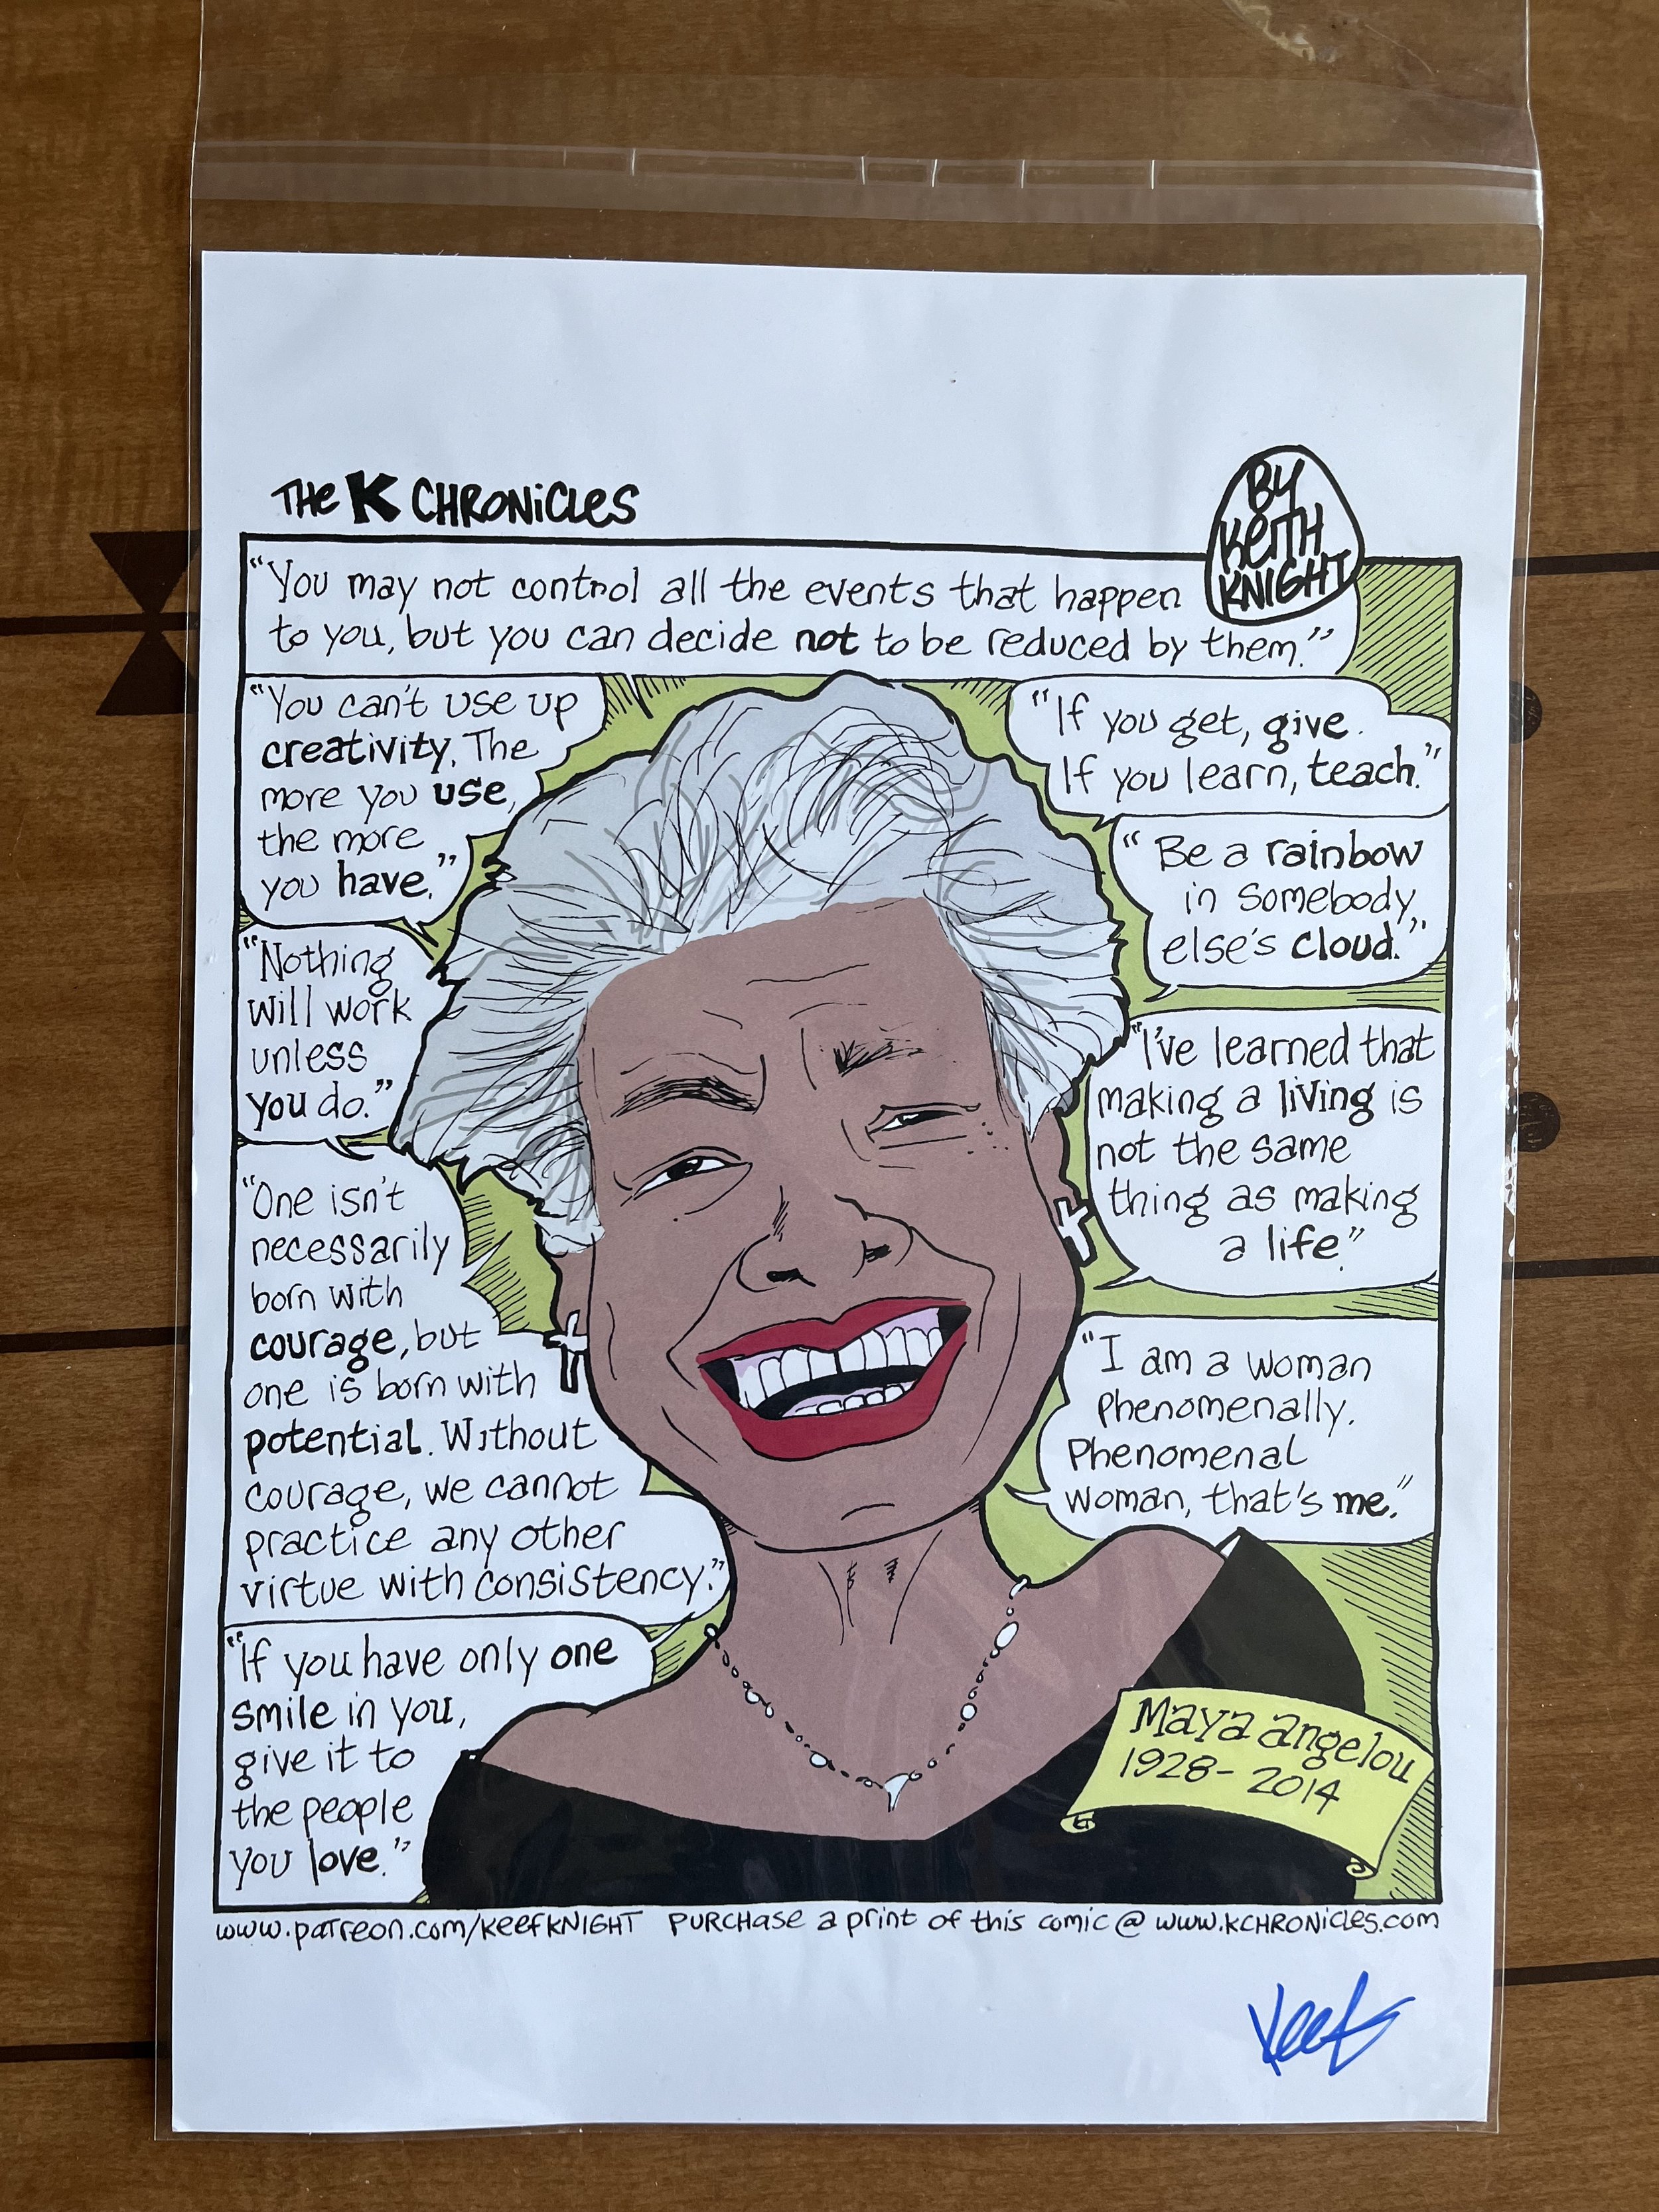 THE K CHRONICLES
BY
KEITH
KNIGHT
"You may not control all the events that happen
to you, but you can decide not to be reduced by them."
"You can't use up
creativity. The
more you use,
the more
you have."
"Nothing
will work
unless
you do."
"One isn't
necessarily
born with
courage, but
one is born with
potential. Without
courage, we cannot
practice any other
virtue with consistency."
"If you have only one
smile in you,
give it to
the people
you love."
"If you get, give.
If you learn, teach."
"Be a rainbow
in somebody
else's cloud."
"I've learned that
making a living is
not the same
thing as making
a life."
"I am a woman
Phenomenally.
Phenomenal
woman, that's me."
Maya angelou
1928-2014
www.patreon.com/keefknight PURCHASE a print of this comic @ www.kchronicles.com
Keef